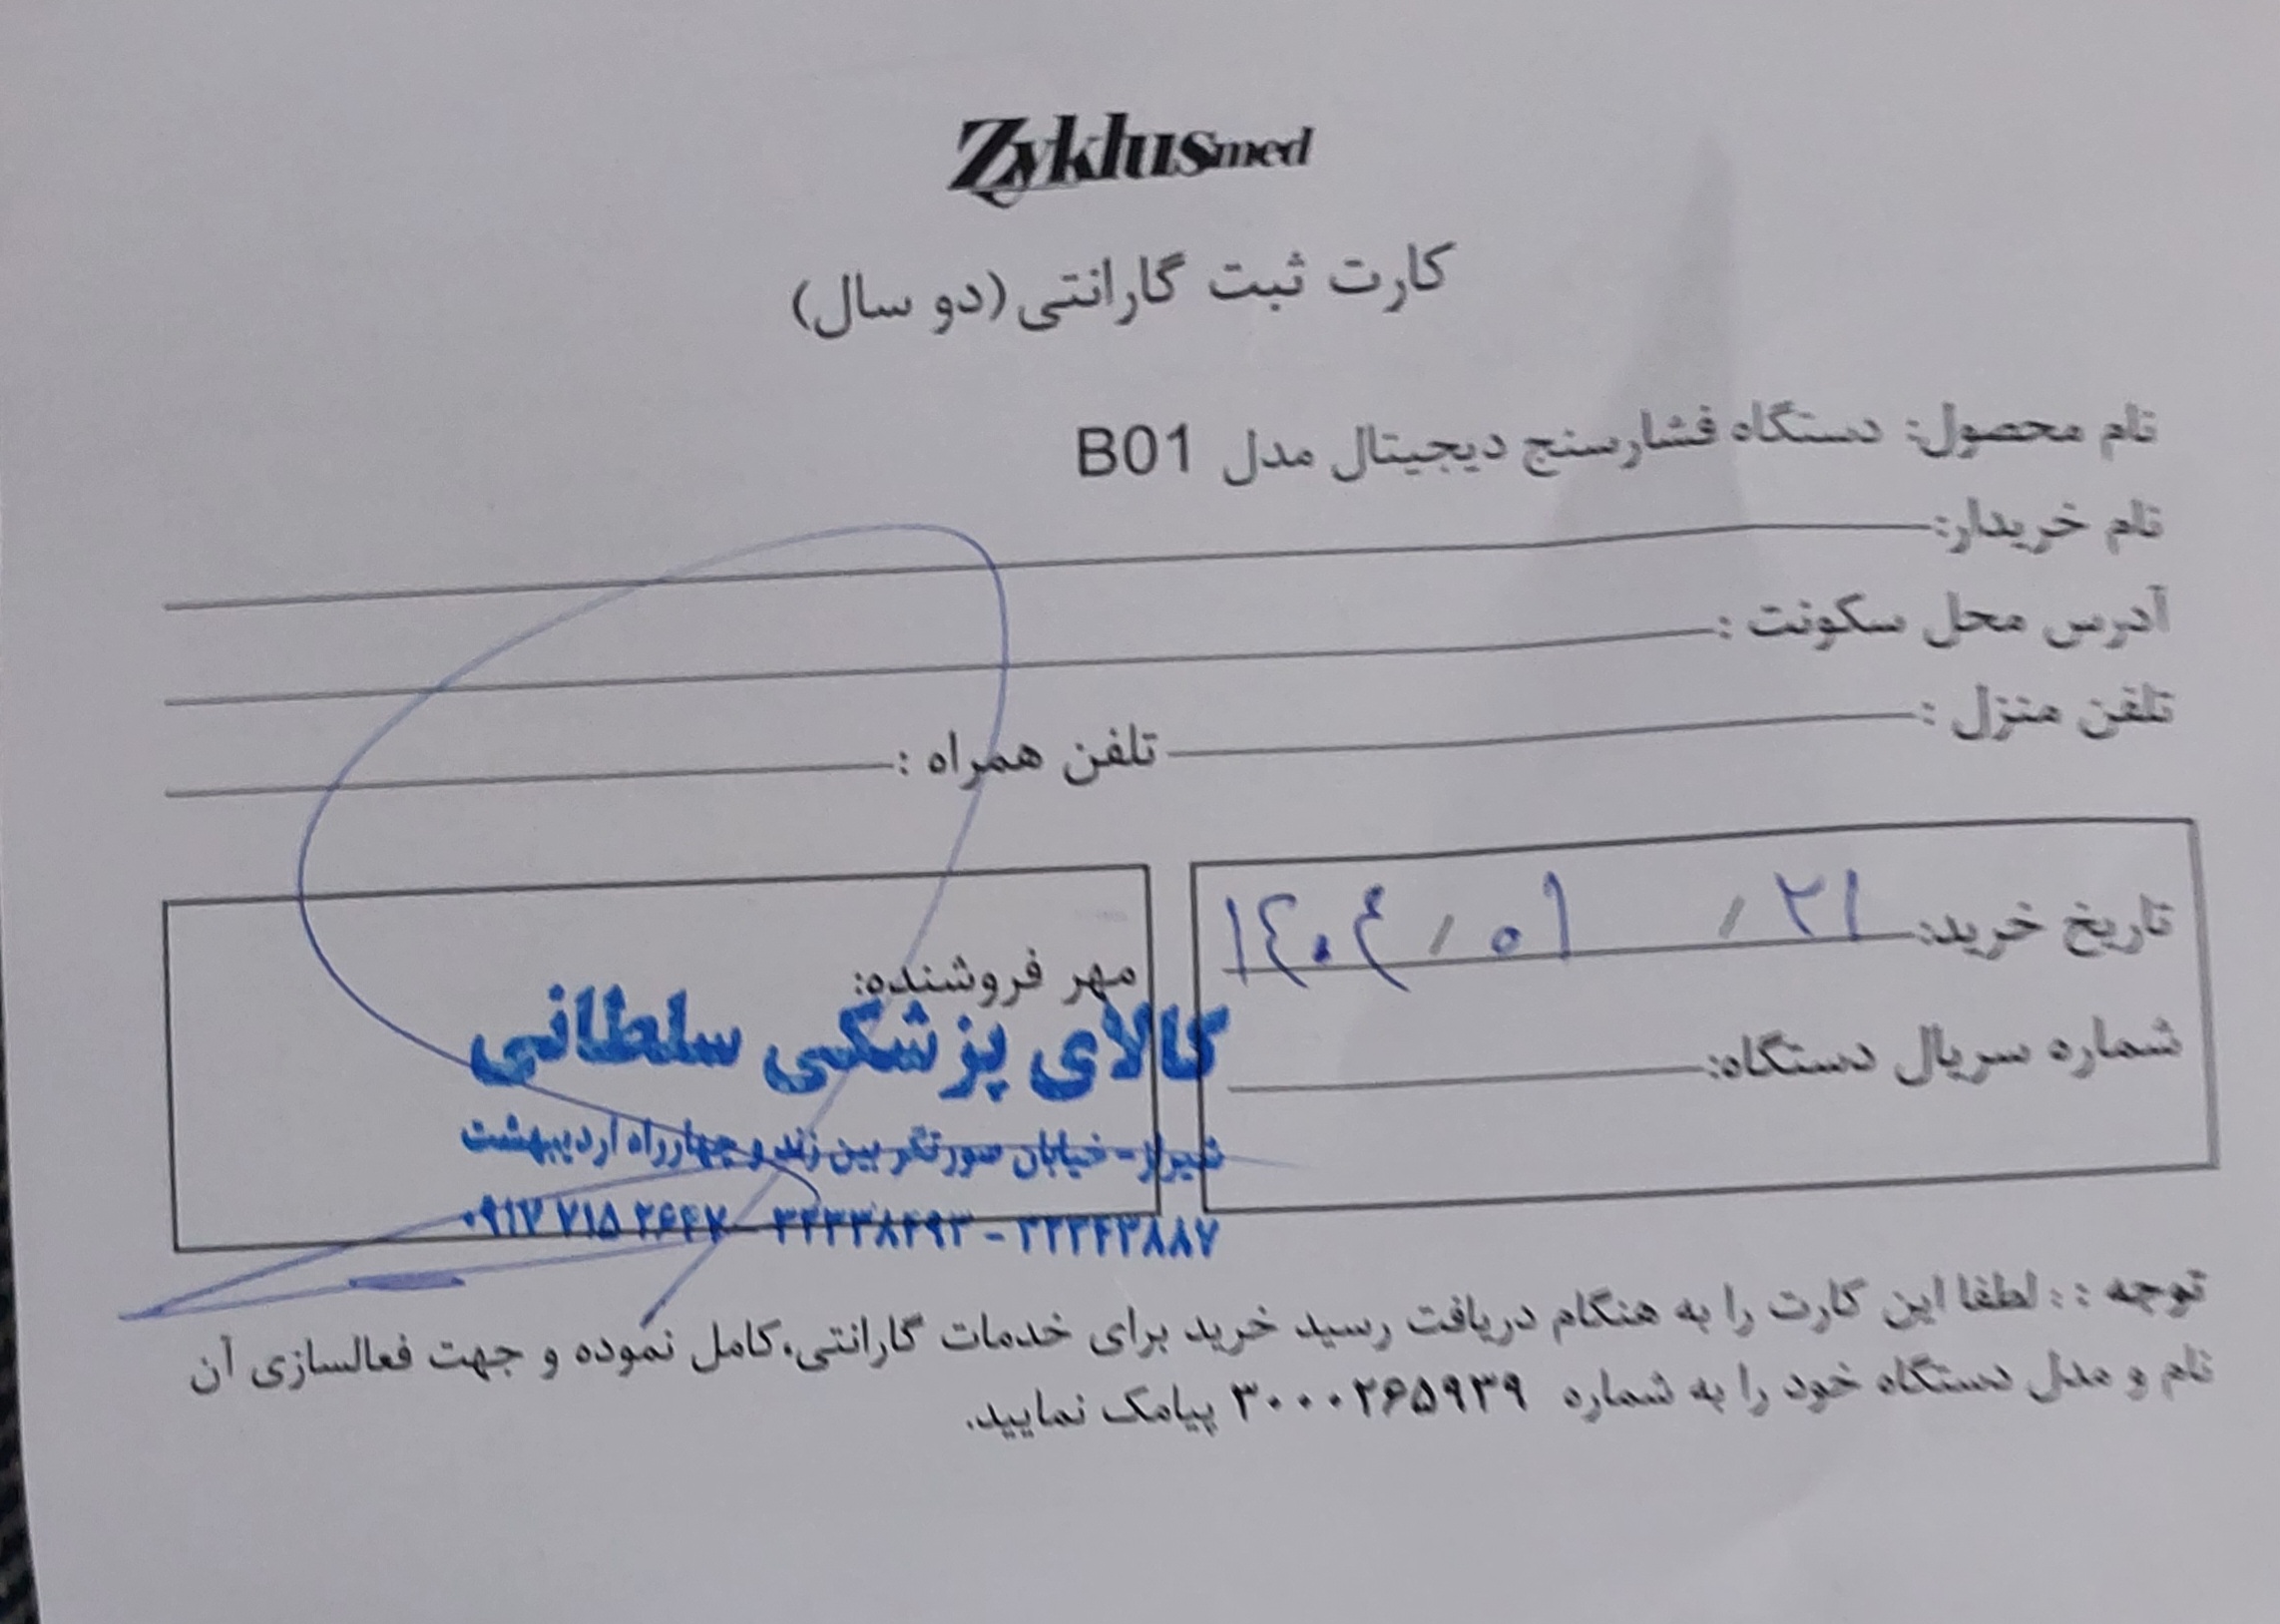 Zyklusmed
کارت ثبت گارانتی (دو سال)
نام محصول: دستگاه فشارسنج دیجیتال مدل B01
نام خریدار:
آدرس محل سکونت :
تلفن منزل : تلفن همراه :
تاریخ خرید: ۱۴۰۴/۰۱/۲۱
شماره سریال دستگاه:
مهر فروشنده:
کالای پزشکی سلطانی
شیراز - خیابان صورتگر بین زند و چهارراه اردیبهشت
۳۲۳۴۳۸۸۷ - ۳۲۳۳۸۴۹۳ - ۰۹۱۷ ۷۱۵ ۲۶۴۷
توجه : : لطفا این کارت را به هنگام دریافت رسید خرید برای خدمات گارانتی،کامل نموده و جهت فعالسازی آن
نام و مدل دستگاه خود را به شماره ۳۰۰۰۲۶۵۹۳۹ پیامک نمایید.